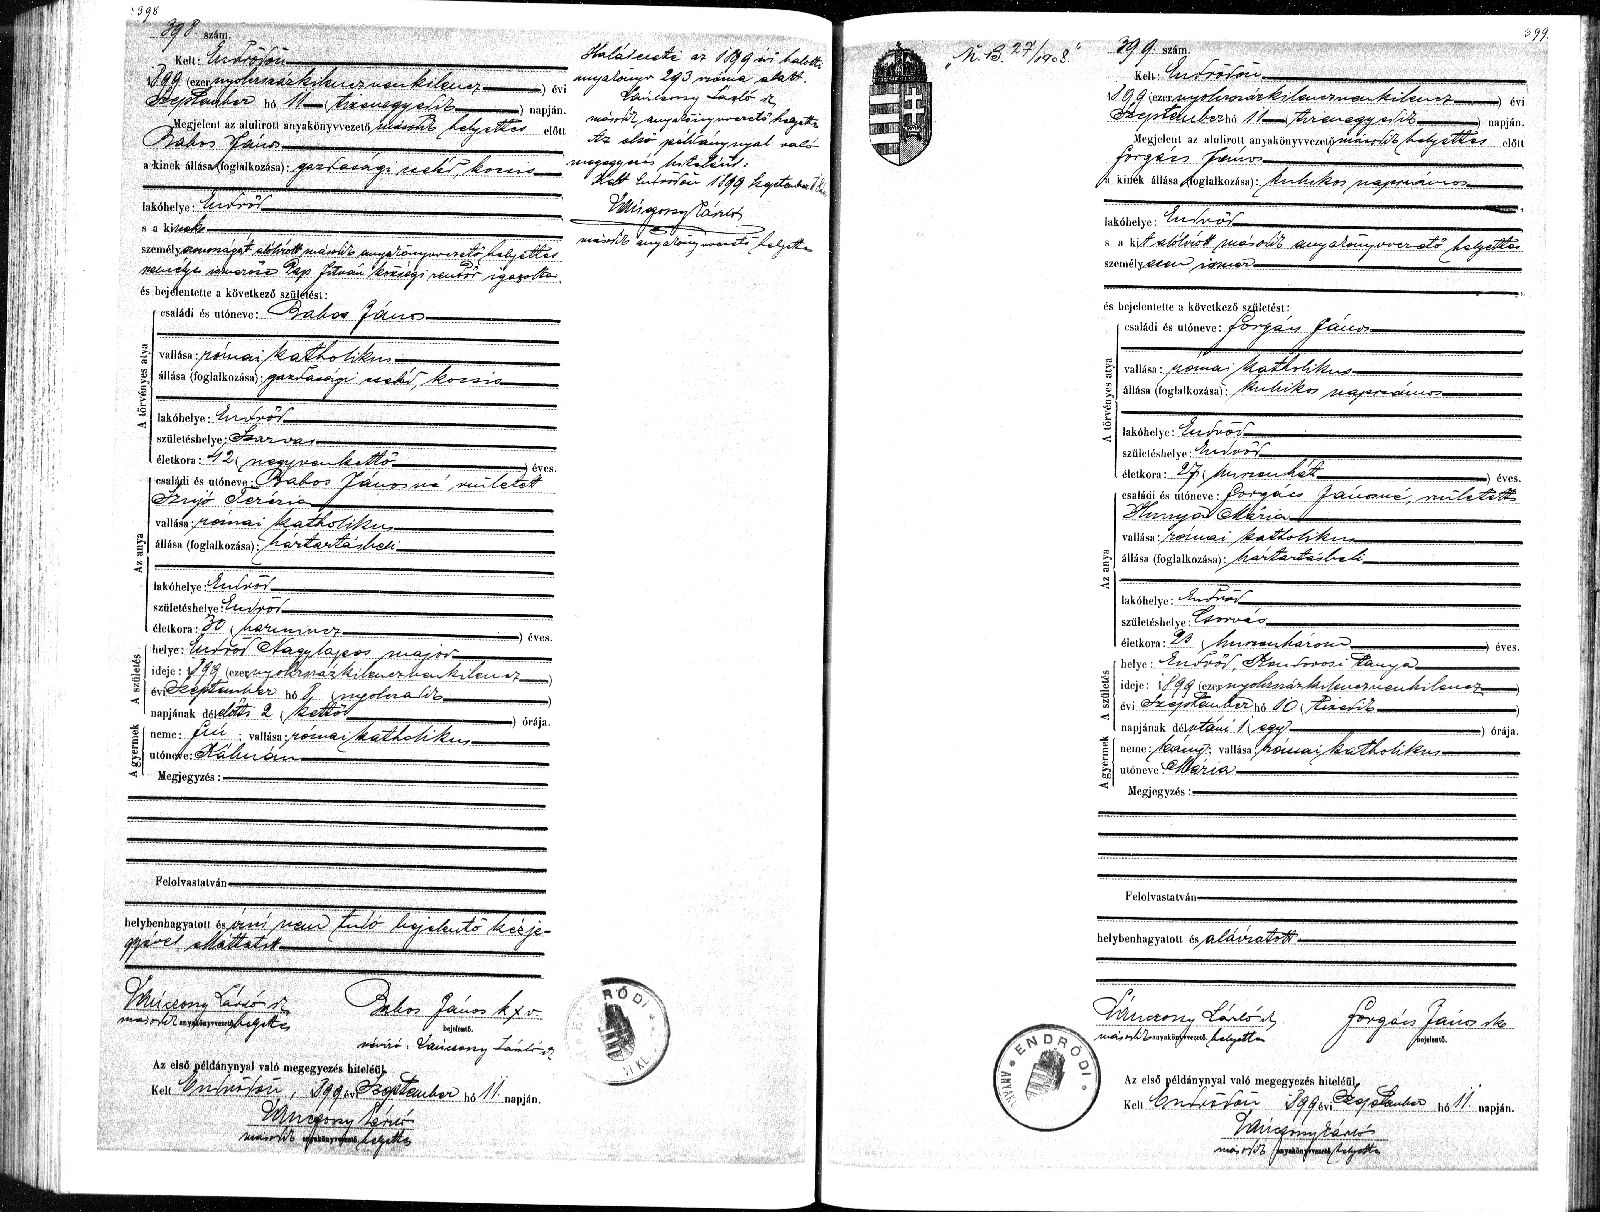 398
398 szám.
Kelt: Endrődön
1899 (ezernyolczszázkilenczvenkilencz) évi
Szeptember hó 11 (tizenegyedik) napján.
Megjelent az alulirott anyakönyvvezető második helyettes előtt
Babos János
a kinek állása (foglalkozása): gazdasági cseléd, kocsis
lakóhelye: Endrőd
s a kinek
személyazonosságát alólirott második anyakönyvvezető helyettes
személye ismerőse Pap István községi rendőr igazolta
és bejelentette a következő születést:
A törvényes atya
családi és utóneve: Babos János
vallása: római katholikus
állása (foglalkozása): gazdasági cseléd, kocsis
lakóhelye: Endrőd
születéshelye: Szarvas
életkora: 42 (negyvenkettő) éves.
Az anya
családi és utóneve: Babos Jánosné született
Szujó Terézia
vallása: római katholikus
állása (foglalkozása): háztartásbeli
lakóhelye: Endrőd
születéshelye: Endrőd
életkora: 30 (harmincz) éves.
A születés
helye: Endrőd Nagylapos major
ideje: 1899 (ezernyolczszázkilenczvenkilencz)
évi Szeptember hó 8 (nyolczadik)
napjának délelőtti 2 (kettő) órája.
A gyermek
neme: fiú; vallása: római katholikus
utóneve: Kálmán
Megjegyzés:
Felolvastatván
helybenhagyatott és irni nem tudó bejelentő kézje-
gyével elláttatott
Vánczony László sk
második anyakönyvvezető helyettes
Babos János k x v.
bejelentő.
névíró: Vánczony László sk
Az első példánynyal való megegyezés hiteléül.
Kelt Endrődön, 1899 évi Szeptember hó 11 napján.
Vánczony László
második anyakönyvvezető helyettes
Halálesete az 1899 évi halotti
anyakönyv 293 száma alatt.
Vánczony László sk
második anyakönyvvezető helyettes
Az első példánynyal való
megegyezés hiteléül.
Kelt Endrődön 1899 Szeptember
Vánczony László
második anyakönyvvezető helyettes
ENDRŐDI
399
N. B. 27/1908.
399 szám.
Kelt: Endrődön
1899 (ezernyolczszázkilenczvenkilencz) évi
Szeptember hó 11 (tizenegyedik) napján.
Megjelent az alulirott anyakönyvvezető második helyettes előtt
Forgács János
a kinek állása (foglalkozása): kubikos napszámos
lakóhelye: Endrőd
s a kit alólirott második anyakönyvvezető helyettes
személyesen ismer
és bejelentette a következő születést:
A törvényes atya
családi és utóneve: Forgács János
vallása: római katholikus
állása (foglalkozása): kubikos napszámos
lakóhelye: Endrőd
születéshelye: Endrőd
életkora: 27 (huszonhét) éves.
Az anya
családi és utóneve: Forgács Jánosné, született
Hunya Mária
vallása: római katholikus
állása (foglalkozása): háztartásbeli
lakóhelye: Endrőd
születéshelye: Csorvás
életkora: 23 (huszonhárom) éves.
A születés
helye: Endrőd, Kondorosi tanya
ideje: 1899 (ezernyolczszázkilenczvenkilencz)
évi Szeptember hó 10 (tizedik)
napjának délutáni 1 (egy) órája.
A gyermek
neme: leány; vallása: római katholikus
utóneve: Mária
Megjegyzés:
Felolvastatván
helybenhagyatott és aláíratott
Vánczony László sk
második anyakönyvvezető helyettes
Forgács János sk
bejelentő.
ENDRŐDI
Az első példánynyal való megegyezés hiteléül.
Kelt Endrődön 1899 évi Szeptember hó 11 napján.
Vánczony László
második anyakönyvvezető helyettes